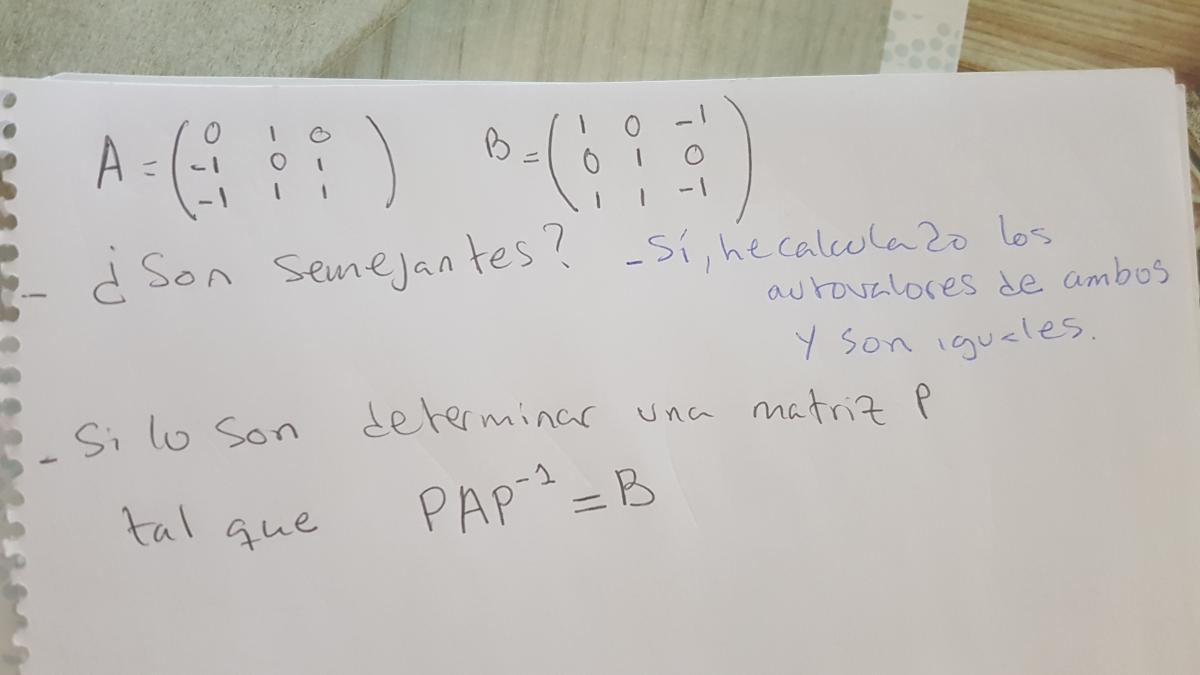 A = ( 0 1 0 B = ( 1 0 -1
-1 0 1 0 1 0
-1 1 1 ) 1 1 -1 )
- ¿Son semejantes? - Sí, he calculado los
autovalores de ambos
y son iguales.
- Si lo son determinar una matriz P
tal que PAP⁻¹ = B